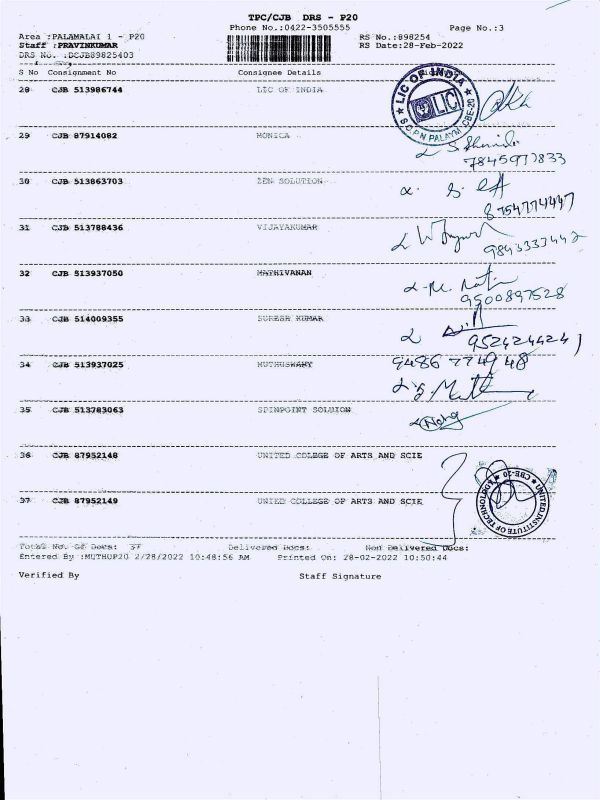 TPC/CJB DRS - P20
Phone No.:0422-3505555 Page No.:3
Area :PALAMALAI 1 - P20 RS No.:898254
Staff :PRAVINKUMAR RS Date:28-Feb-2022
DRS No. :DCJB89825403
S No Consignment No Consignee Details
28 CJB 513986744 LIC OF INDIA
LIC OF INDIA
LIC
S.C.P.N PALAYM CBE-20
29 CJB 87914082 MONICA
7845977833
30 CJB 513863703 ZEN SOLUTION
8754774447
31 CJB 513788436 VIJAYAKUMAR
9843337442
32 CJB 513937050 MATHIVANAN
9500897528
33 CJB 514009355 SURESH KUMAR
9524244241
34 CJB 513937025 MUTHUSWAMY
9486 7749 48
35 CJB 513783063 SPINPOINT SOLUION
36 CJB 87952148 UNITED COLEGE OF ARTS AND SCIE
37 CJB 87952149 UNIED COLLEGE OF ARTS AND SCIE
UNITED INSTITUTE OF TECHNOLOGY CBE-20
Total No. Of Docs: 37 Delivered Docs: Non Delivered Docs:
Entered By :MUTHUP20 2/28/2022 10:48:56 AM Printed On: 28-02-2022 10:50:44
Verified By Staff Signature